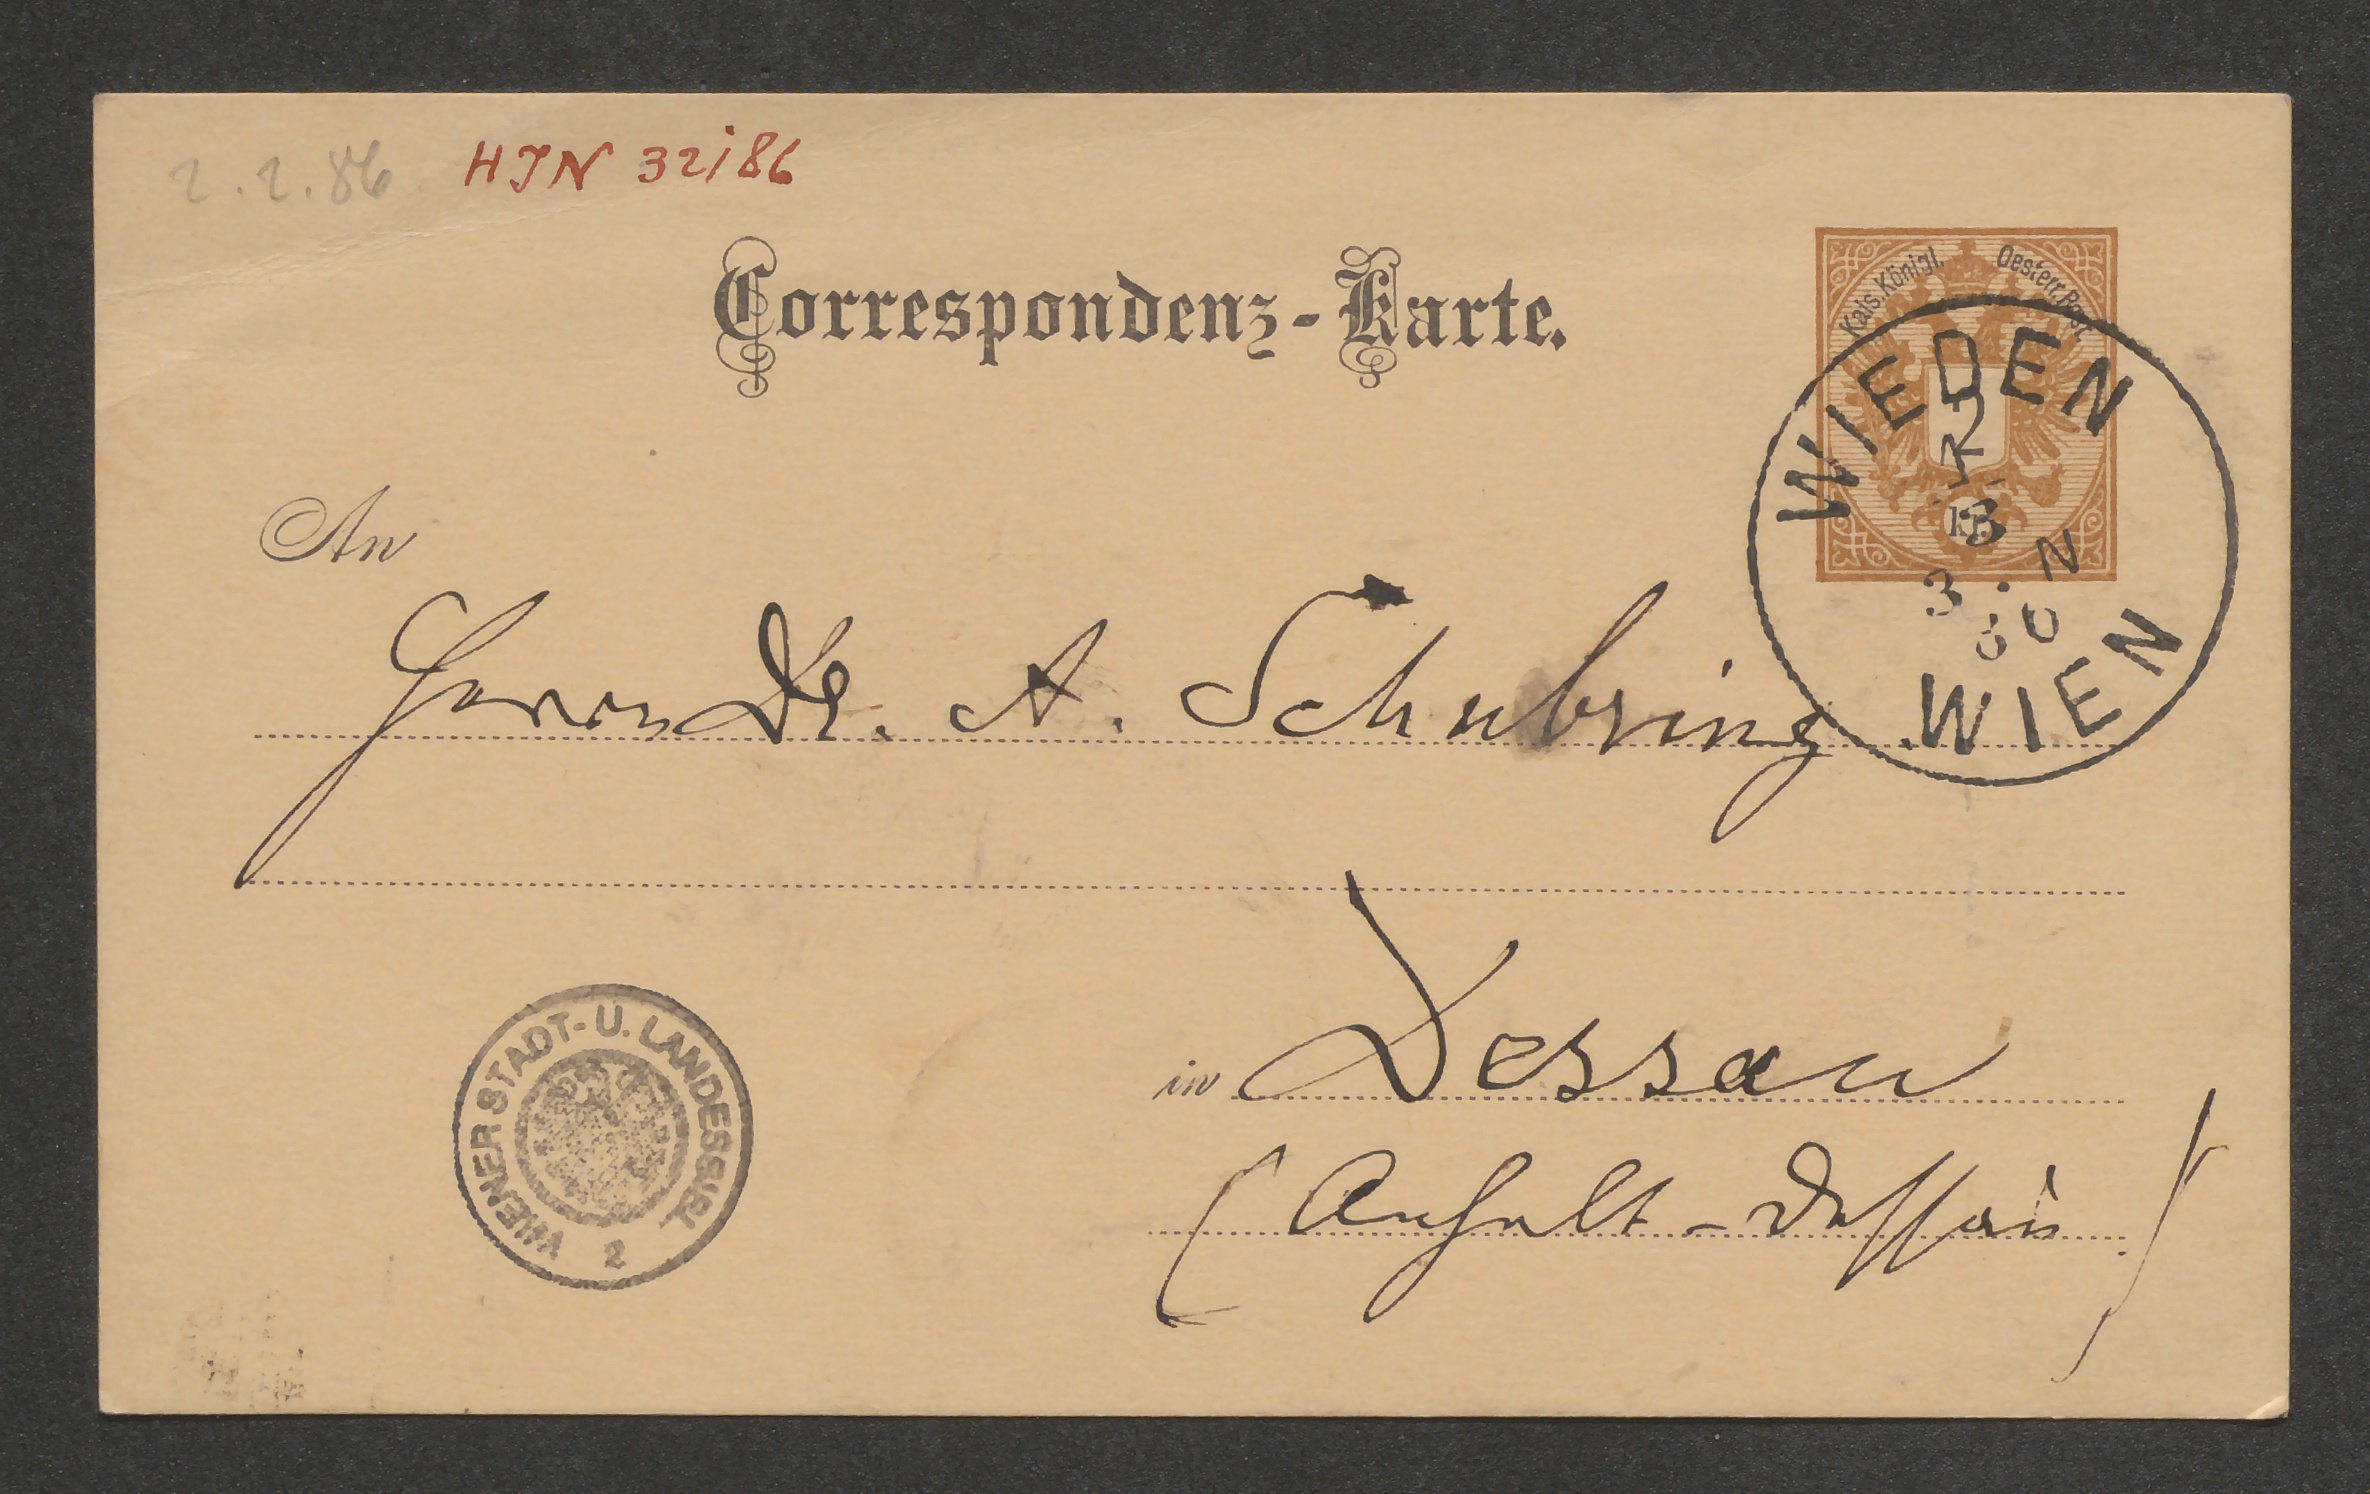 2.2.86. HJN 32186
Correspondenz-Karte.
Kais. Königl. Oesterr. Post.
WIEDEN
kr.
3 30 N
WIEN
An
Herrn Dr. A. Schubring
in Dessau
(Anhalt-Dessau)
WIENER STADT- U. LANDESBIBL.
2